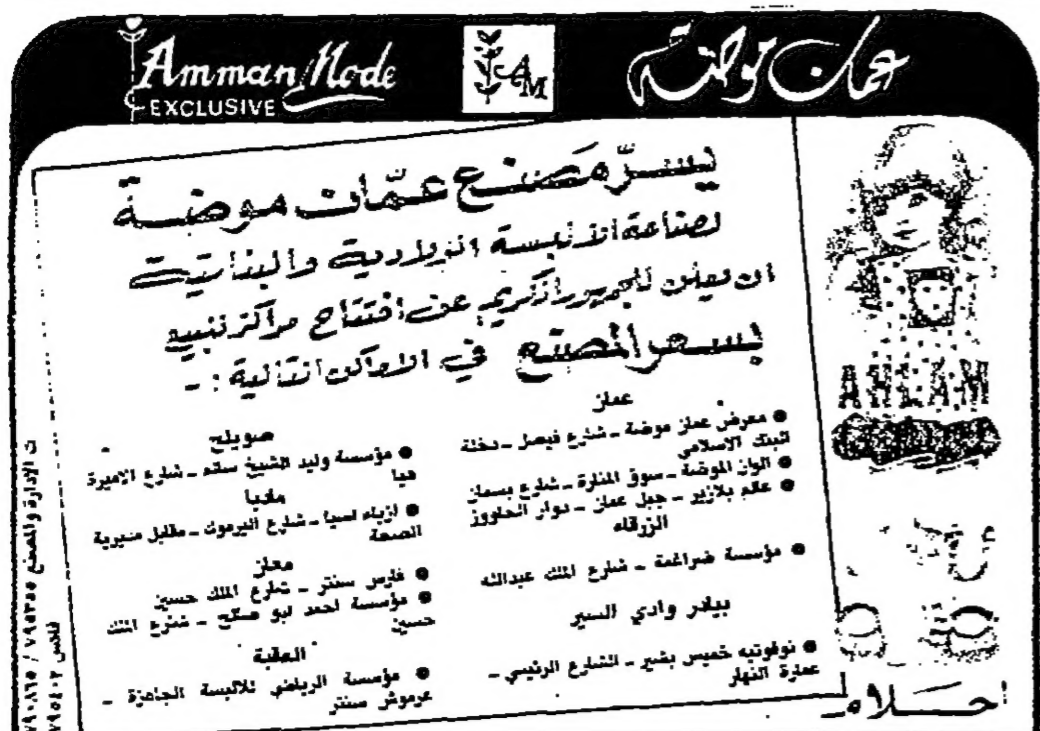 Amman Mode
EXCLUSIVE
AM
عمان موضة
يسرّ مَصنع عمّان موضة
لصناعة الالبسة الولادية والبناتية
ان يعلن للجمهور الكريم عن افتتاح مراكز تنبيه
بسعر المصنع في الاماكن التالية :-
عمان
● معرض عمان موضة - شارع فيصل - دخلة
البنك الاسلامي
● الوان الموضة - سوق المنارة - شارع بسمان
● عالم بلازير - جبل عمان - دوار الحاووز
الزرقاء
● مؤسسة ضراغمة - شارع الملك عبدالله
بيادر وادي السير
● نوفوتيه خميس بشير - الشارع الرئيسي -
عمارة النهار
صويلح
● مؤسسة وليد الشيخ سالم - شارع الاميرة
هيا
مادبا
● ازياء لميا - شارع اليرموك - مقابل مديرية
الصحة
معان
● فارس سنتر - شارع الملك حسين
● مؤسسة احمد ابو صالح - شارع الملك
حسين
العقبة
● مؤسسة الرياضي للالبسة الجاهزة -
عرموش سنتر
AHLAM
احلام
ت الإدارة والمصنع ٧٩٥٣٥٥ / ٧٩٠٨٦٥
فاكس ٧٩٥٤٠٢